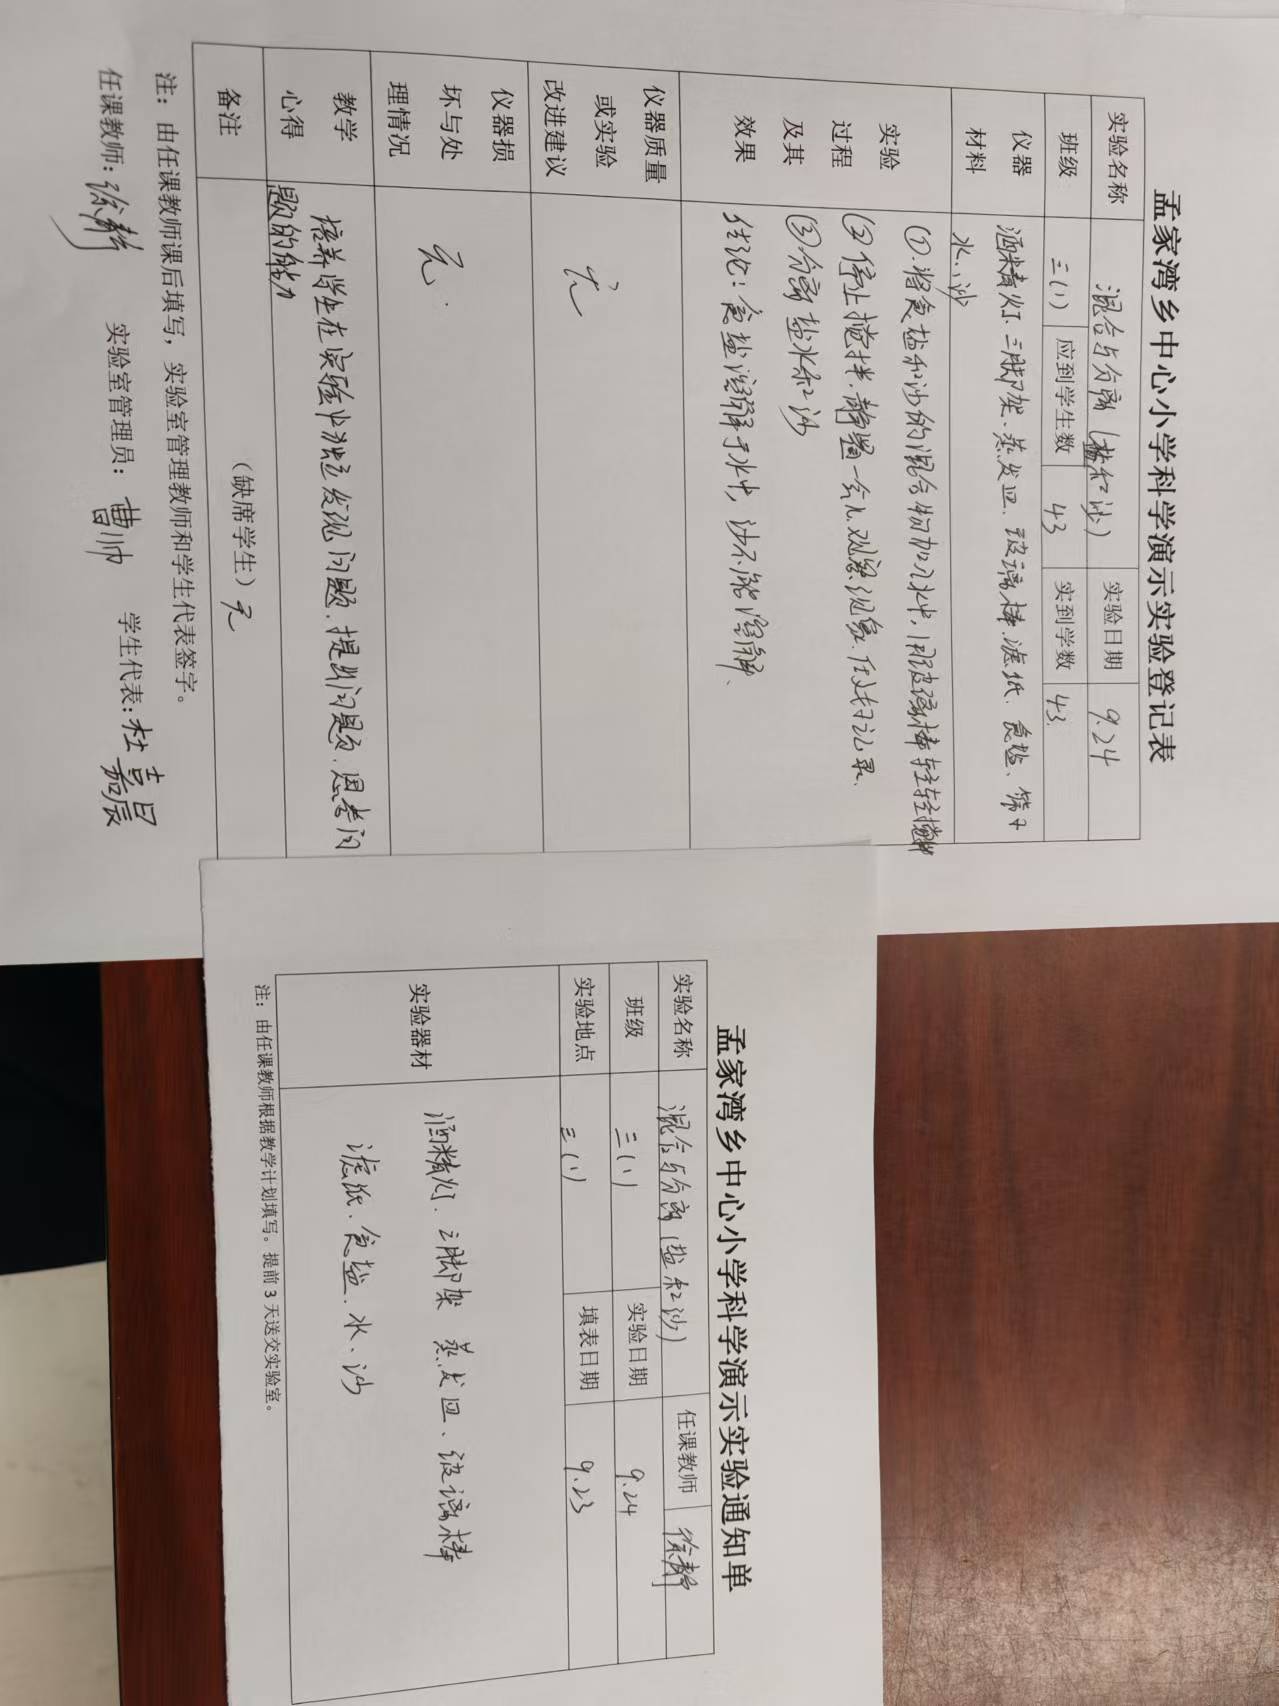 孟家湾乡中心小学科学演示实验登记表
实验名称 混合与分离(盐和沙) 实验日期 9.24
班级 三(1) 应到学生数 43 实到学数 43.
仪器材料 酒精灯、三脚架、蒸发皿、玻璃棒、滤纸、食盐、筛子
水、沙
实验过程及其效果 ①.将食盐和沙的混合物加入水中,用玻璃棒轻轻搅拌
②停止搅拌.静置一会儿观察现象.作好记录.
③分离盐水和沙
结论:食盐溶解于水中,沙不能溶解、
仪器质量或实验改进建议 无
仪器损坏与处理情况 无.
教学心得 培养学生在实验中独立发现问题、提出问题、思考问
题的能力
备注 (缺席学生)无
注:由任课教师课后填写,实验室管理教师和学生代表签字。
任课教师:徐静 实验室管理员:曹帅 学生代表:杜嘉辰
孟家湾乡中心小学科学演示实验通知单
实验名称 混合与分离(盐和沙) 任课教师 徐静
班级 三(1) 实验日期 9.24
实验地点 三(1) 填表日期 9.23
实验器材 酒精灯、三脚架 蒸发皿、玻璃棒
滤纸、食盐、水、沙
注:由任课教师根据教学计划填写。提前3天送交实验室。